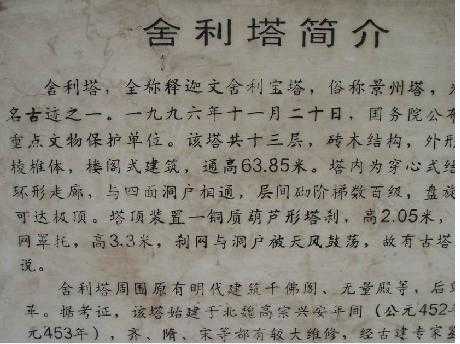 舍利塔简介
舍利塔，全称释迦文舍利宝塔，俗称景州塔，
名古迹之一。一九九六年十一月二十日，国务院公布
重点文物保护单位。该塔共十三层，砖木结构，外形
棱椎体，楼阁式建筑，通高63.85米。塔内为穿心式结
环形走廊，与四面洞户相通，层间砌阶梯数百级，盘旋
可达极顶。塔顶装置一铜质葫芦形塔刹，高2.05米，
网罩托，高3.3米，刹网与洞户被天风鼓荡，故有古塔
说。
舍利塔周围原有明代建筑千佛阁、无量殿等，后
革。据考证，该塔始建于北魏高宗兴安平间（公元452
元453年），齐、隋、宋等都有较大维修，经古建专家